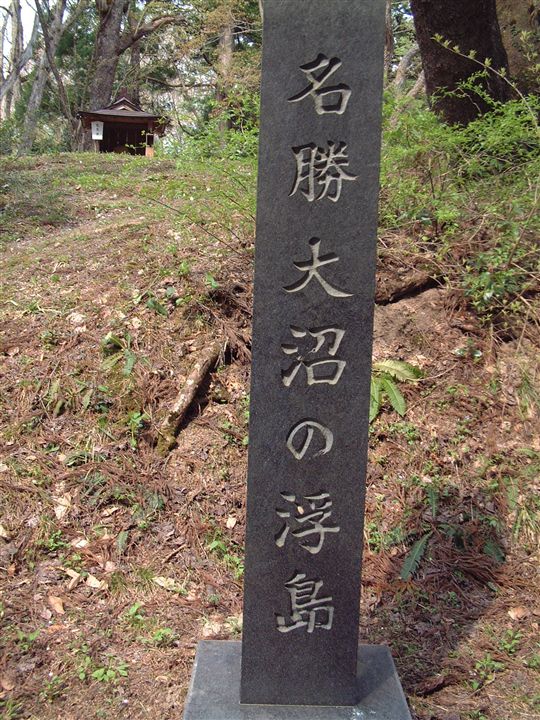 名勝大沼の浮島